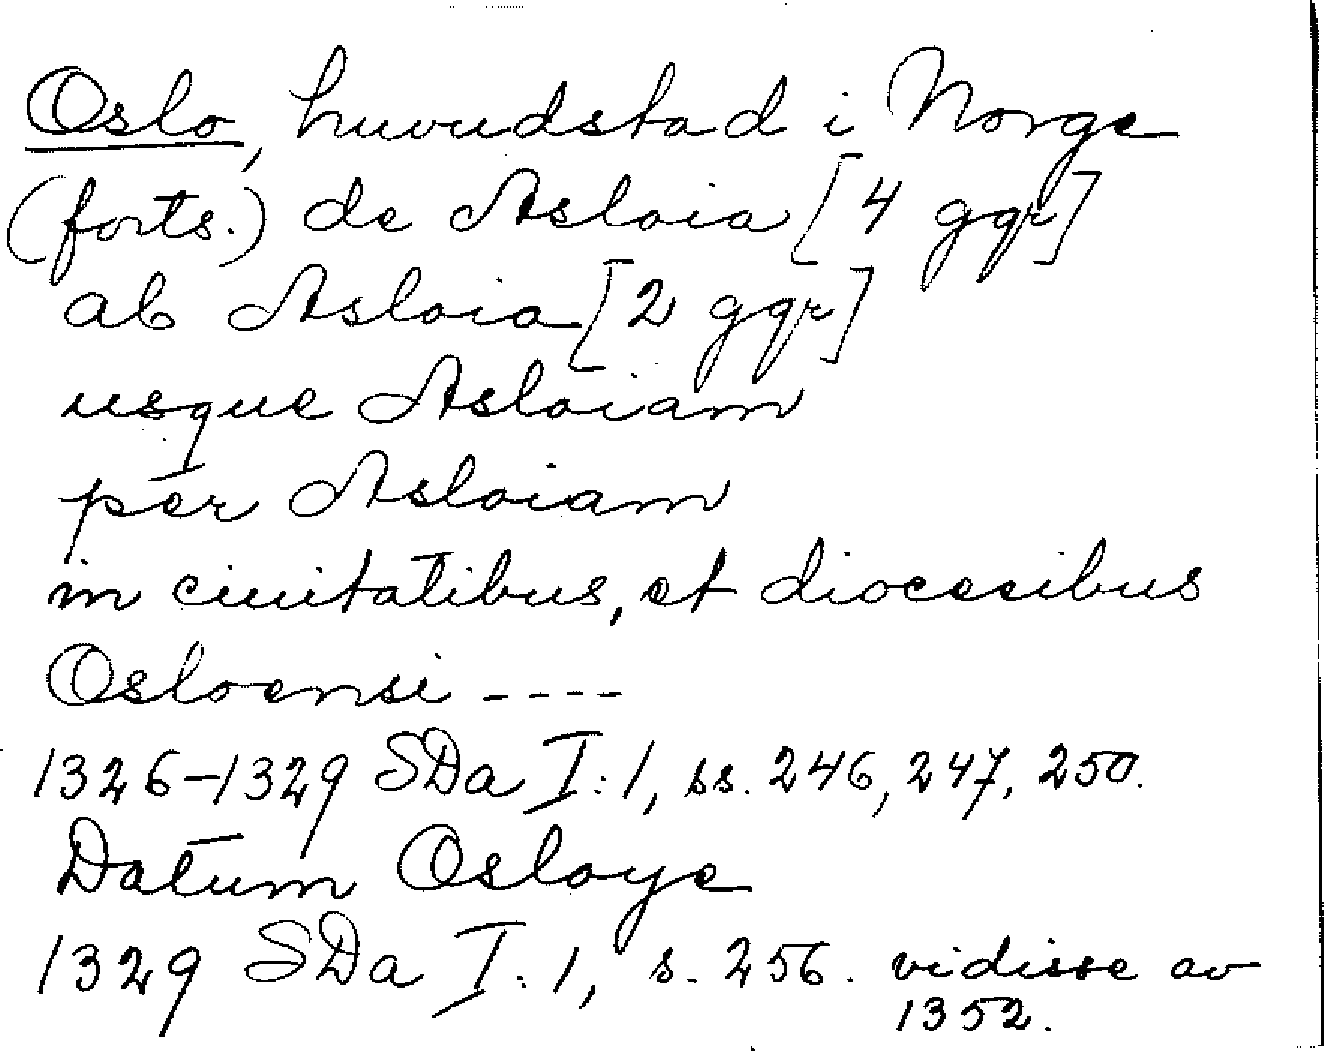 Oslo, huvudstad i Norge
(forts.) de Asloia [4 ggr]
ab Asloia [2 ggr]
usque Asloiam
per Asloiam
in ciuitatibus, et diocesibus
Osloensi ----
1326-1329 SDa I:1, ss. 246, 247, 250.
Datum Osloye
1329 SDa I:1, s. 256. vidisse av
1352.